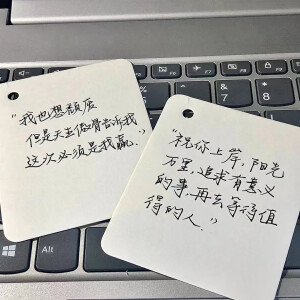 “我也想颓废
但是天生傲骨告诉我
这次必须是我赢.”
“祝你上岸，阳光
万里，追求有意义
的事，再去等待值
得的人.”
Alt